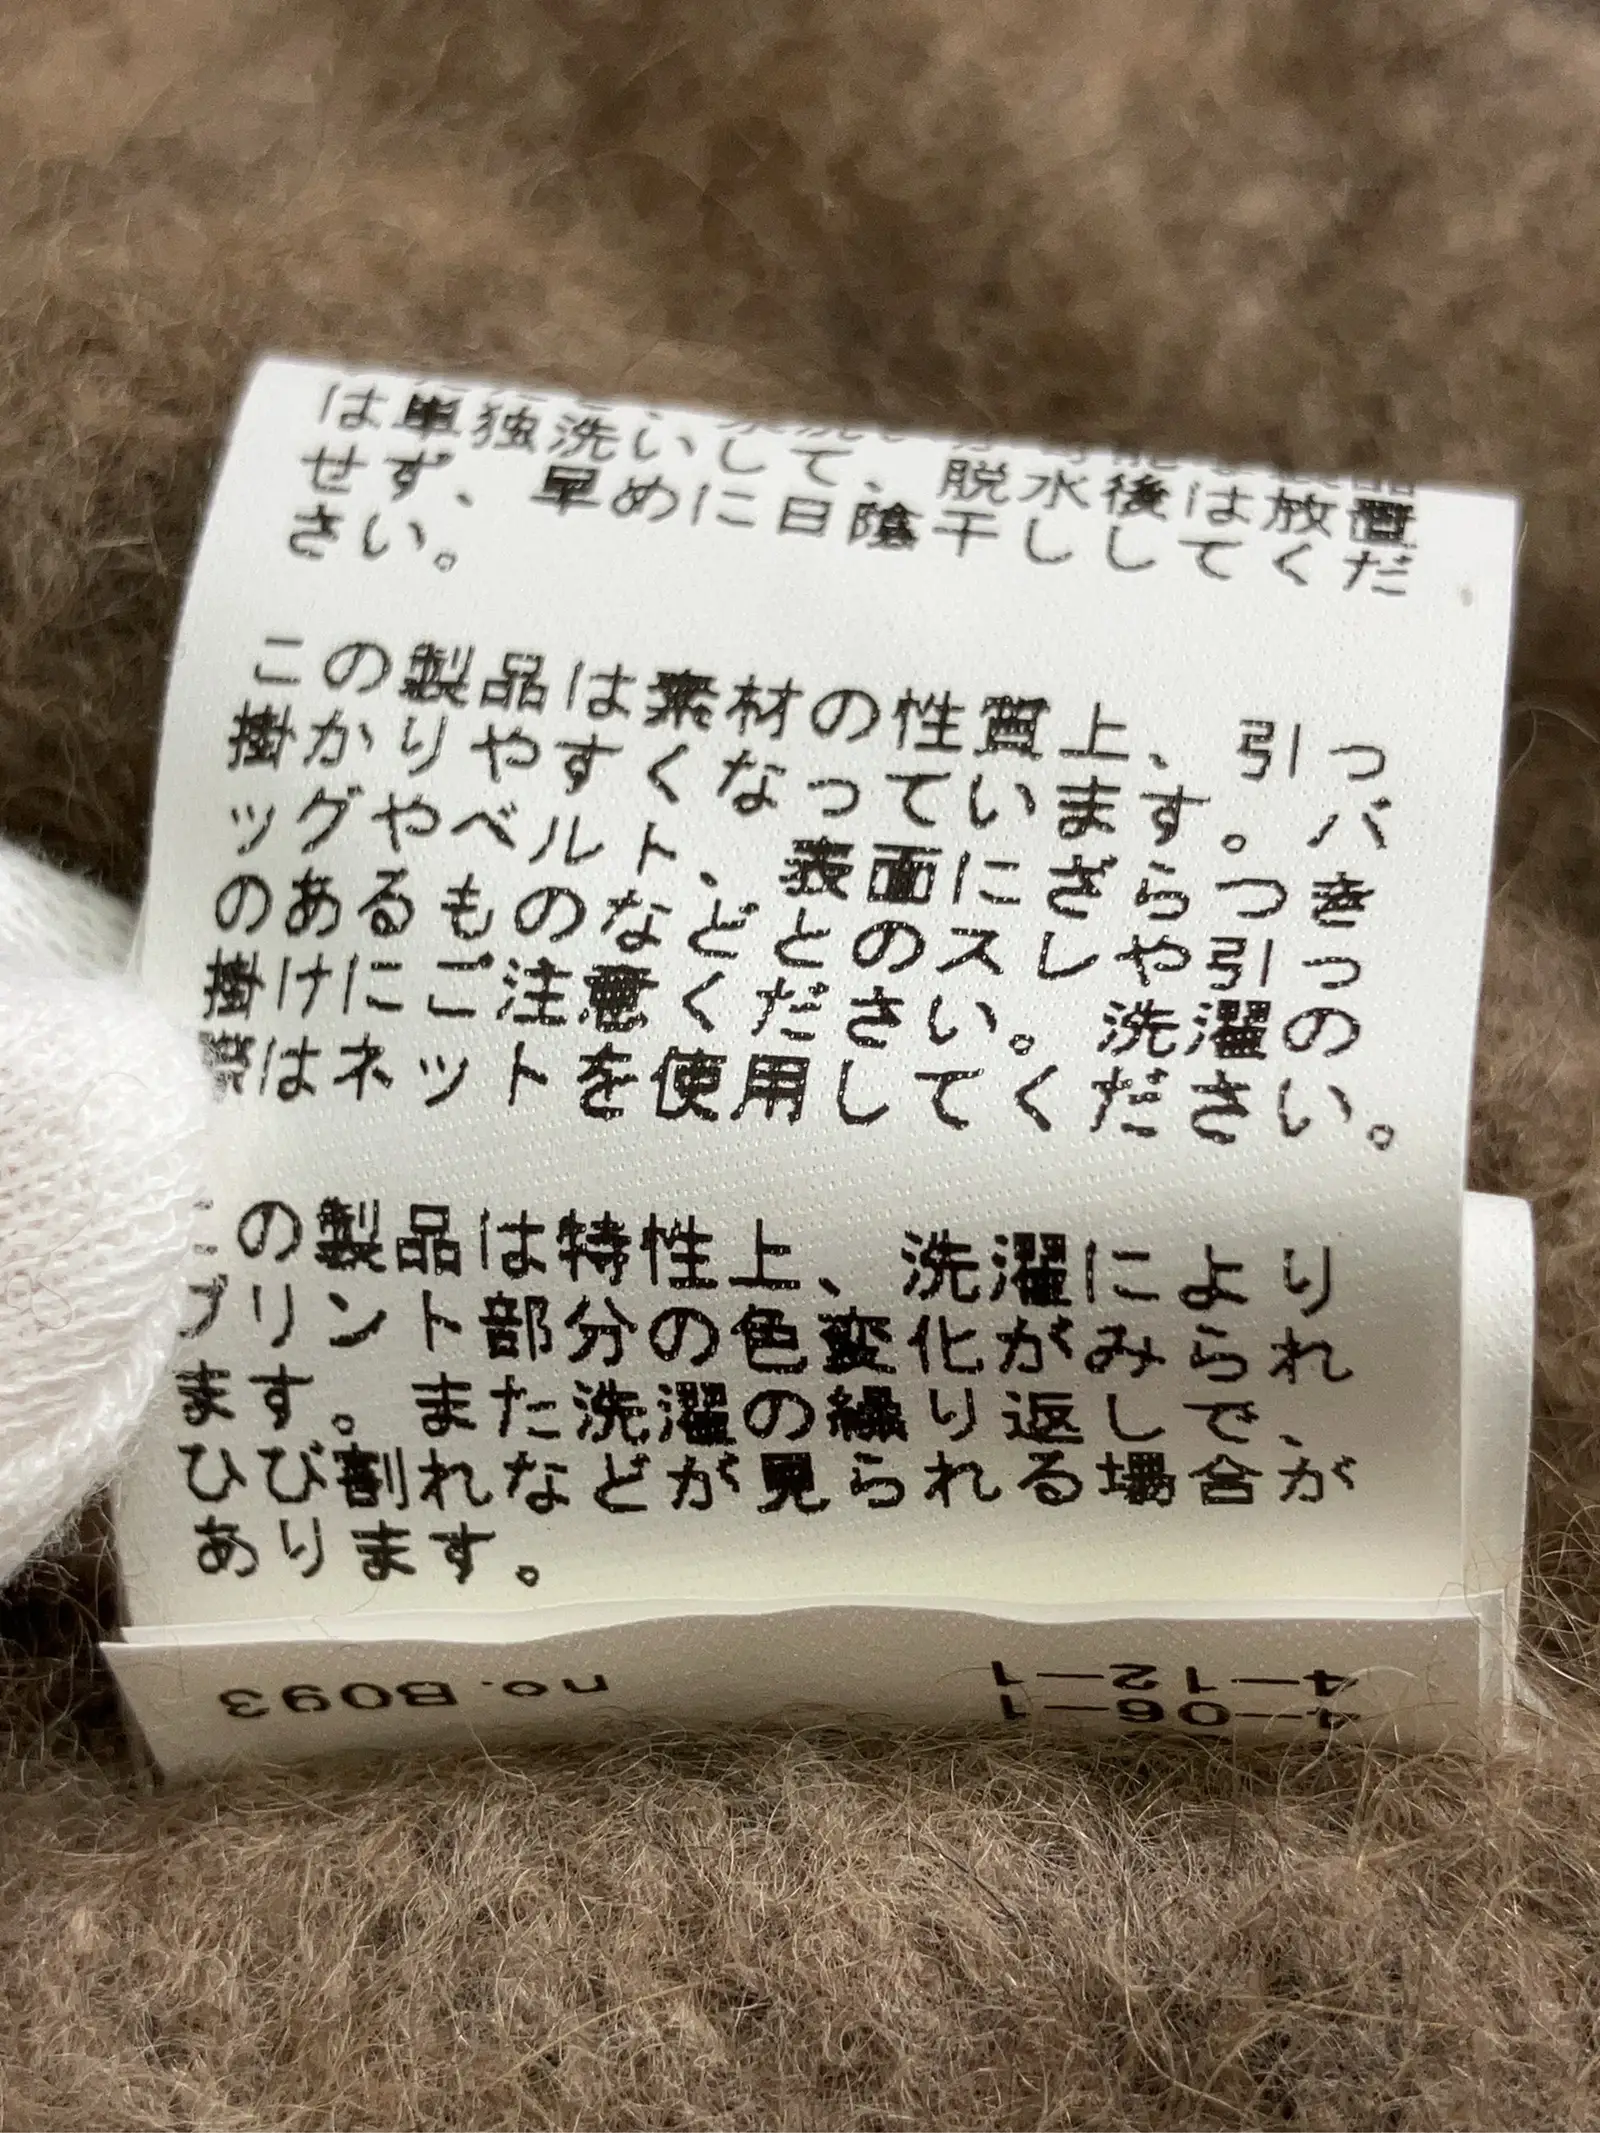 は単独洗いして、脱水後は放置
せず、早めに日陰干ししてくだ
さい。
この製品は素材の性質上、引っ
掛かりやすくなっています。バ
ッグやベルト、表面にざらつき
のあるものなどとのスレや引っ
掛けにご注意ください。洗濯の
際はネットを使用してください。
この製品は特性上、洗濯により
プリント部分の色変化がみられ
ます。また洗濯の繰り返しで、
ひび割れなどが見られる場合が
あります。
4-06-1
4-12-1
no.B093